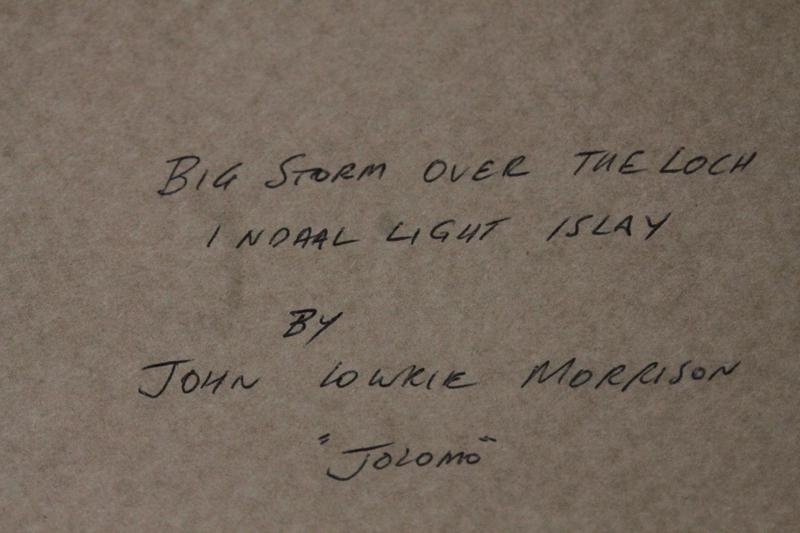 BIG STORM OVER THE LOCH
INDAAL LIGHT ISLAY
BY
JOHN LOWRIE MORRISON
"JOLOMO"